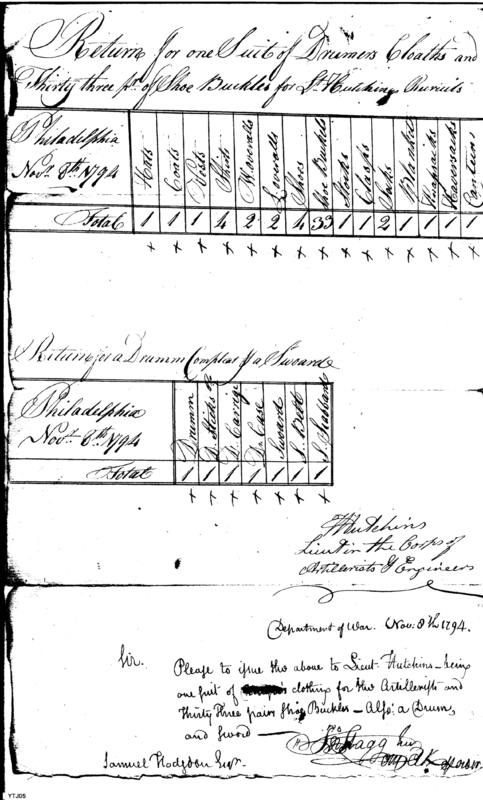 Return for one Suit of Drumers Cloaths and
Thirty three pr. of Shoe Buckles for Lt. Hutchins
Philadelphia
Novr. 8th. 1794
Hats
Coats
Vests
Shirts
Overalls
Shoes
Shoe Buckles
Stocks
Clasps
Socks
Blankets
Knapsacks
Haversacks
Canteens
Total 1 1 1 4 2 2 4 33 1 1 2 1 1 1 1
x x x x x x x x x x x x x x x
Return for a Drumm Compleat & a Sword
Philadelphia
Novr. 8th. 1794
Drumm
D. Sticks pr
D. Carrige
D. Case
Sword
S. Belt
S. Scabbard
Total 1 1 1 1 1 1 1
x x x x x x x
Hutchins
Lieut in the Corps of
Artillerists & Engineers
Department of War. Nov: 8th 1794.
Sir.
Please to issue the above to Lieut. Hutchins – being
one suit of clothing for the Artillerists and
thirty three pairs Shoe Buckles – Also: a Drum,
and sword –
Jno Stagg Junr
Samuel Hodgdon Esqr.
YTJ05